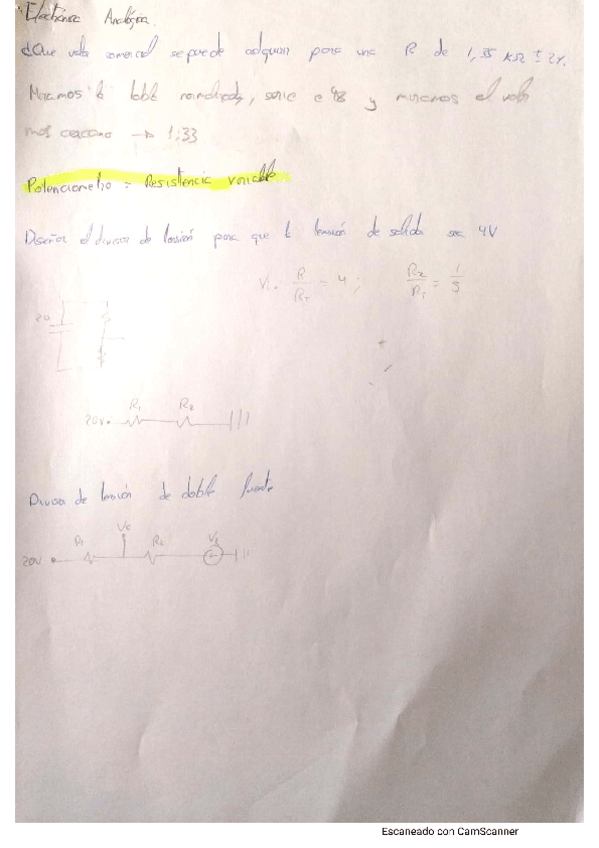 Electrónica Analógica.
¿Que valor comercial se puede adquirir para una R de 1,35 KΩ ± 2%.
Miramos la tabla normalizada, serie e 48 y miramos el valor
más cercano → 1:33
Potenciometro = Resistencia variable
Diseñar el divisor de tensión para que la tensión de salida sea 4V
Vi · R/RT = 4 ; R2/RT = 1/5
20
R1 R2
20V
Divisor de tensión de doble fuente
Vs
R1 R2 V2
20V
Escaneado con CamScanner